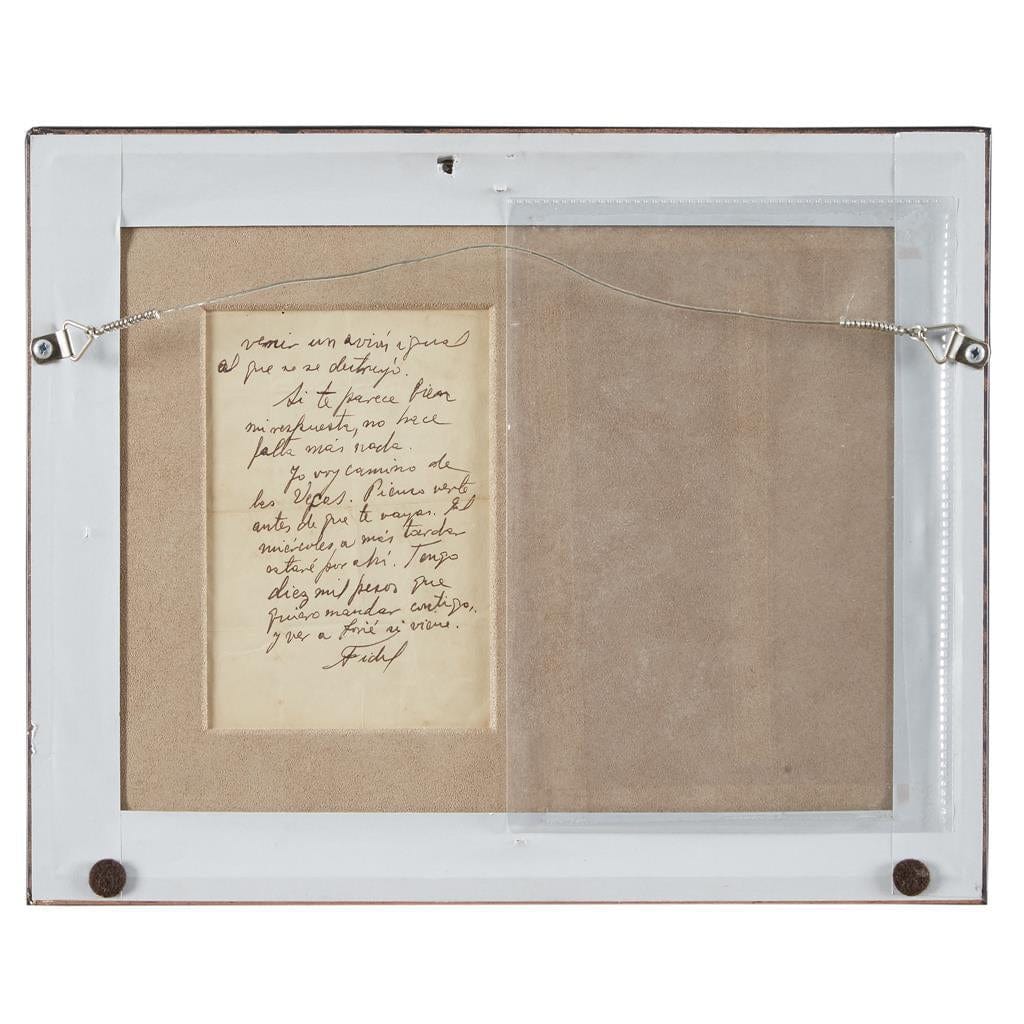 venir un avión igual
al que no se destruyó.
Si te parece bien
mi respuesta, no hace
falta más nada.
Yo voy camino de
las Vegas. Pienso verte
antes de que te vayas. El
miércoles, a más tardar
estaré por ahí. Tengo
diez mil pesos que
quiero mandar contigo,
y ver a José si viene.
Fidel